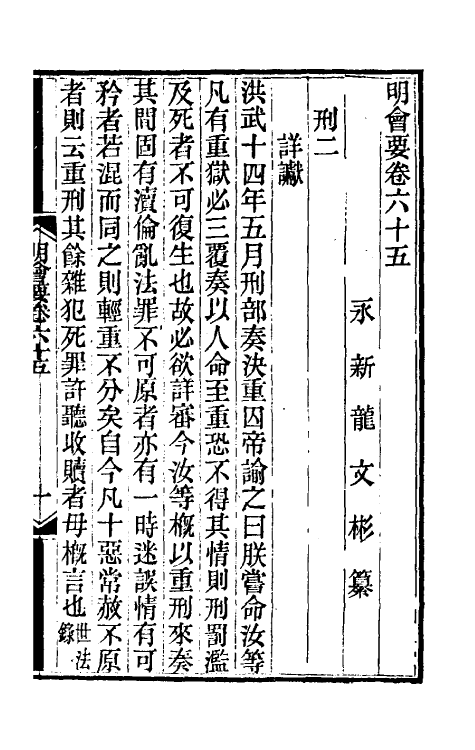 明會要卷六十五
永新龍文彬纂
刑二
詳讞
洪武十四年五月刑部奏決重囚帝諭之曰朕嘗命汝等
凡有重獄必三覆奏以人命至重恐不得其情則刑罰濫
及死者不可復生也故必欲詳審今汝等槪以重刑來奏
其間固有瀆倫亂法罪不可原者亦有一時迷誤情有可
矜者若混而同之則輕重不分矣自今凡十惡常赦不原
者則云重刑其餘雜犯死罪許聽收贖者毋槪言也世法錄
明會要卷六十五
一